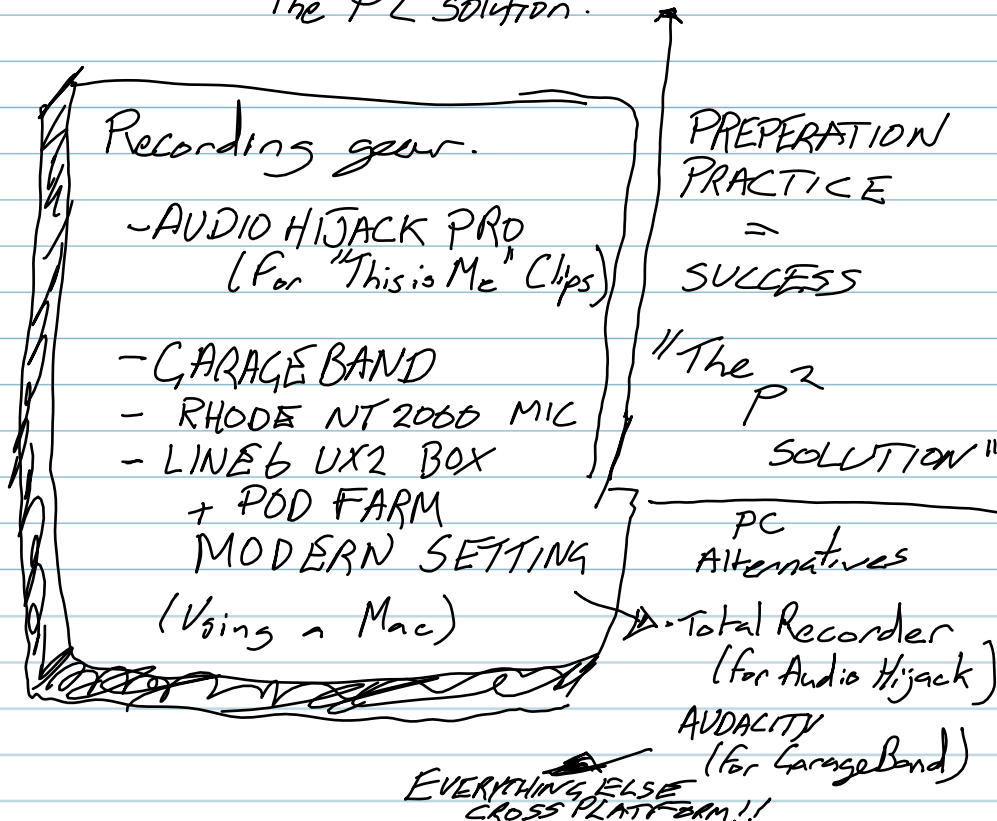 The P2 Solution.
Recording gear.
- AUDIO HIJACK PRO
(For "This is Me" Clips)
- GARAGEBAND
- RHODE NT2000 MIC
- LINE6 UX2 BOX
+ POD FARM
MODERN SETTING
(Using a Mac)
PREPERATION
PRACTICE
=
SUCCESS
"The
P2
SOLUTION"
PC
Alternatives
· Total Recorder
(for Audio Hijack)
AUDACITY
(for GarageBand)
EVERYTHING ELSE
CROSS PLATFORM!!